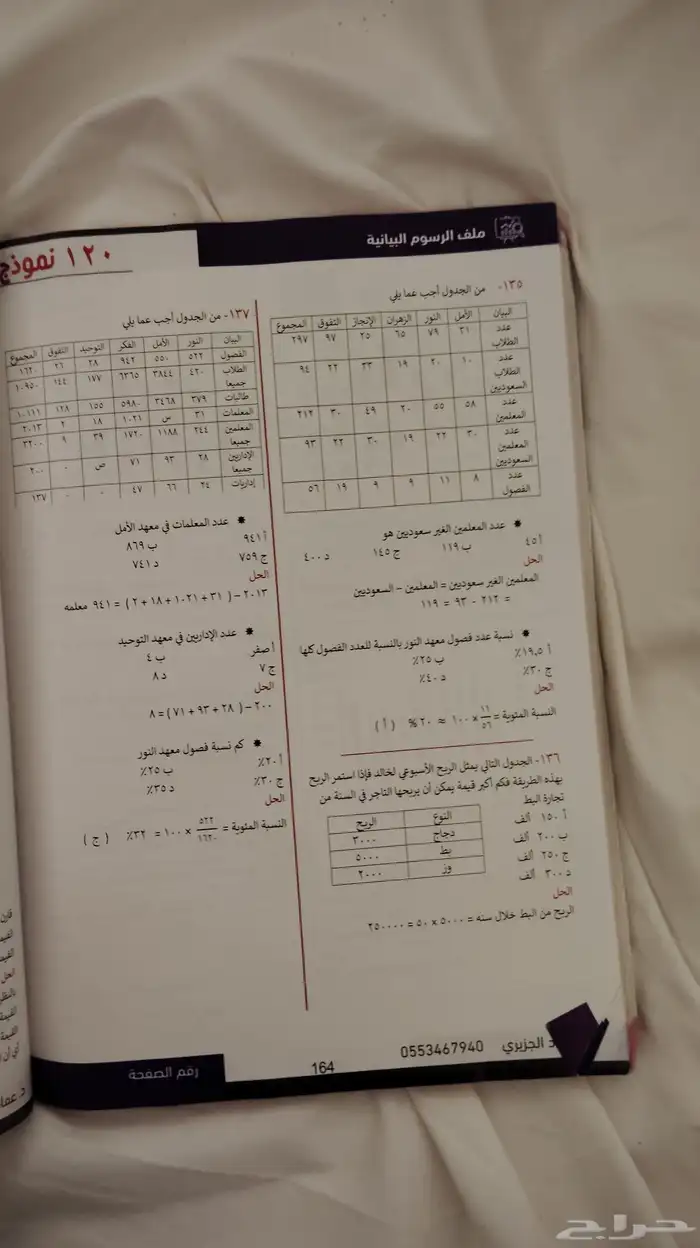 ملف الرسوم البيانية
١٢٠ نموذج
١٣٥- من الجدول أجب عما يلي
البيان الأمل النور الزهران الإنجاز التفوق المجموع
عدد الطلاب ٣١ ٧٩ ٦٥ ٢٥ ٩٧ ٢٩٧
عدد الطلاب السعوديين ١٠ ٢٠ ١٩ ٣٣ ٢٢ ٩٤
عدد المعلمين ٥٨ ٥٥ ٢٠ ٤٩ ٣٠ ٢١٢
عدد المعلمين السعوديين ٣٠ ٢٢ ١٩ ٣٠ ٢٢ ٩٣
عدد الفصول ٨ ١١ ٩ ٩ ١٩ ٥٦
* عدد المعلمين الغير سعوديين هو
أ ٤٥ ب ١١٩ ج ١٤٥ د ٤٠٠
الحل
المعلمين الغير سعوديين = المعلمين – السعوديين
= ٢١٢ - ٩٣ = ١١٩
* نسبة عدد فصول معهد النور بالنسبة للعدد الفصول كلها
أ ١٩,٥٪ ب ٢٥٪
ج ٣٠٪ د ٤٠٪
الحل
النسبة المئوية = ١١/٥٦ × ١٠٠ ≈ ٢٠ % ( أ )
١٣٦- الجدول التالي يمثل الربح الأسبوعي لخالد فإذا استمر الربح
بهذه الطريقة فكم أكبر قيمة يمكن أن يربحها التاجر في السنة من
تجارة البط
أ ١٥٠ ألف
ب ٢٠٠ ألف
ج ٢٥٠ ألف
د ٣٠٠ ألف
النوع الربح
دجاج ٣٠٠٠
بط ٥٠٠٠
وز ٢٠٠٠
الحل
الربح من البط خلال سنه = ٥٠٠٠ × ٥٠ = ٢٥٠٠٠٠
١٣٧- من الجدول أجب عما يلي
البيان النور الأمل الفكر التوحيد التفوق المجموع
الفصول ٥٢٢ ٥٥٠ ٩٤٢ ٢٨ ٢٦ ١٦٢٠
الطلاب جميعا ٤٢٠ ٣٨٤٤ ٦٣٦٥ ١٧٧ ١٤٤ ١٠٩٥٠
طالبات ٣٧٩ ٣٤٦٨ ٥٩٨٠ ١٥٥ ١٢٨ ١٠١١١
المعلمات ٣١ س ١٠٢١ ١٨ ٢ ٢٠١٣
المعلمين جميعا ٢٤٤ ١١٨٨ ١٧٢٠ ٣٩ ٩ ٣٢٠٠
الإداريين جميعا ٢٨ ٩٣ ٧١ ص ٠ ٢٠٠
إداريات ٢٤ ٦٦ ٤٧ ٠ ٠ ١٣٧
* عدد المعلمات في معهد الأمل
أ ٩٤١ ب ٨٦٩
ج ٧٥٩ د ٧٤١
الحل
٢٠١٣ – ( ٣١ + ١٠٢١ + ١٨ + ٢ ) = ٩٤١ معلمه
* عدد الإداريين في معهد التوحيد
أ صفر ب ٤
ج ٧ د ٨
الحل
٢٠٠ – ( ٢٨ + ٩٣ + ٧١ ) = ٨
* كم نسبة فصول معهد النور
أ ٢٠٪ ب ٢٥٪
ج ٣٠٪ د ٣٥٪
الحل
النسبة المئوية = ٥٢٢/١٦٢٠ × ١٠٠ = ٣٢٪ ( ج )
قارن
القيمة
الحل
القيمة
القيمة
أي أن
د. عما
د الجزيري 0553467940
164
رقم الصفحة
حراج